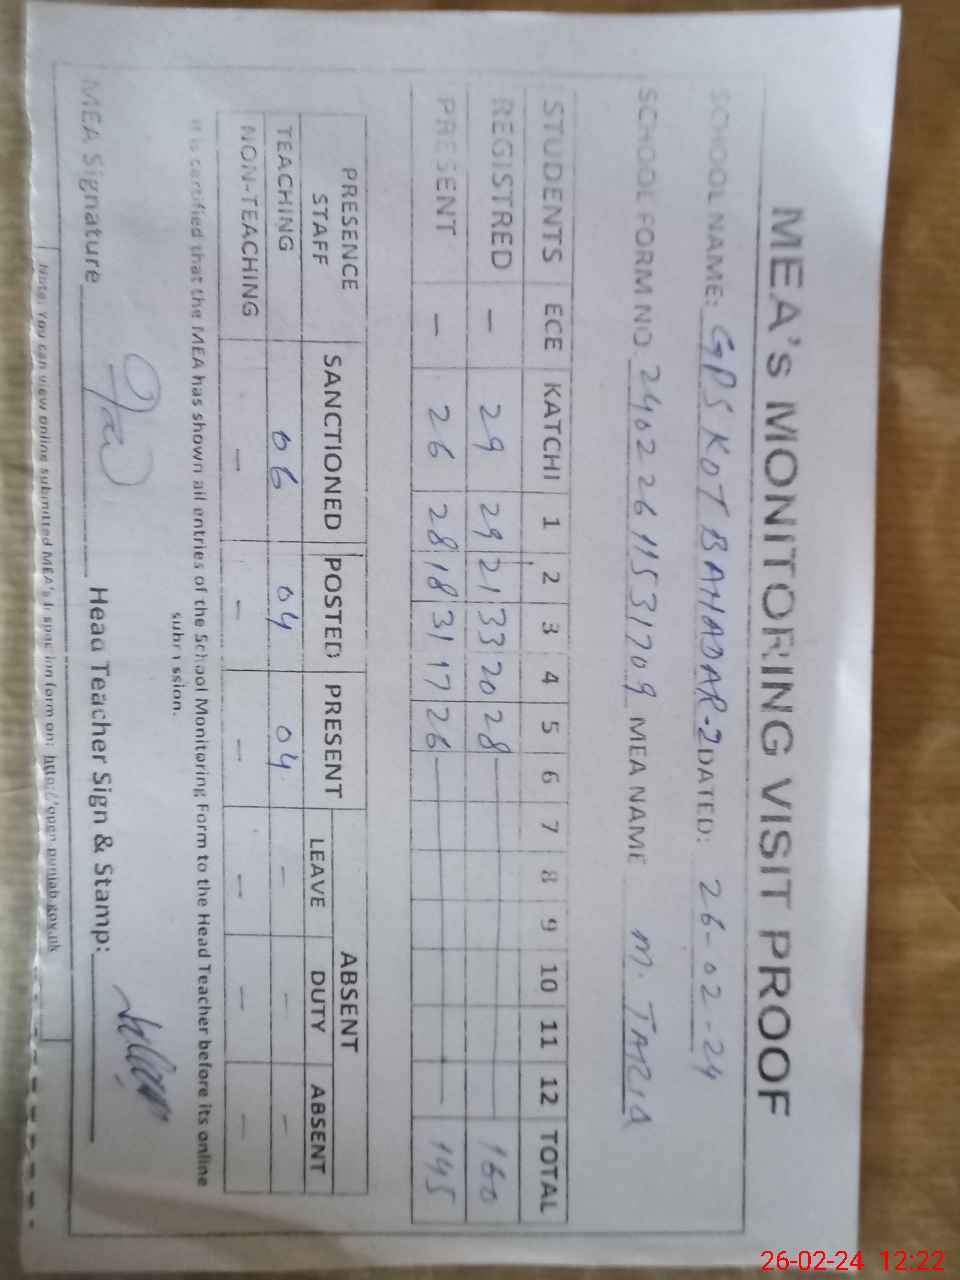 MEA's MONITORING VISIT PROOF
SCHOOL NAME: GPS KOT BAHADAR-2 DATED: 26-02-24
SCHOOL FORM NO 24022611531709 MEA NAME M. TARIQ
STUDENTS ECE KATCHI 1 2 3 4 5 6 7 8 9 10 11 12 TOTAL
REGISTRED - 29 29 21 33 20 28 160
PRESENT - 26 28 18 31 17 26 145
PRESENCE STAFF SANCTIONED POSTED PRESENT ABSENT
LEAVE DUTY ABSENT
TEACHING 06 04 04 - - -
NON-TEACHING - - - - - -
It is certified that the MEA has shown all entries of the School Monitoring Form to the Head Teacher before its online
submission.
MEA Signature Head Teacher Sign & Stamp:
Note: You can view online submitted MEA's Inspection form on: http://open.punjab.gov.pk
26-02-24 12:22